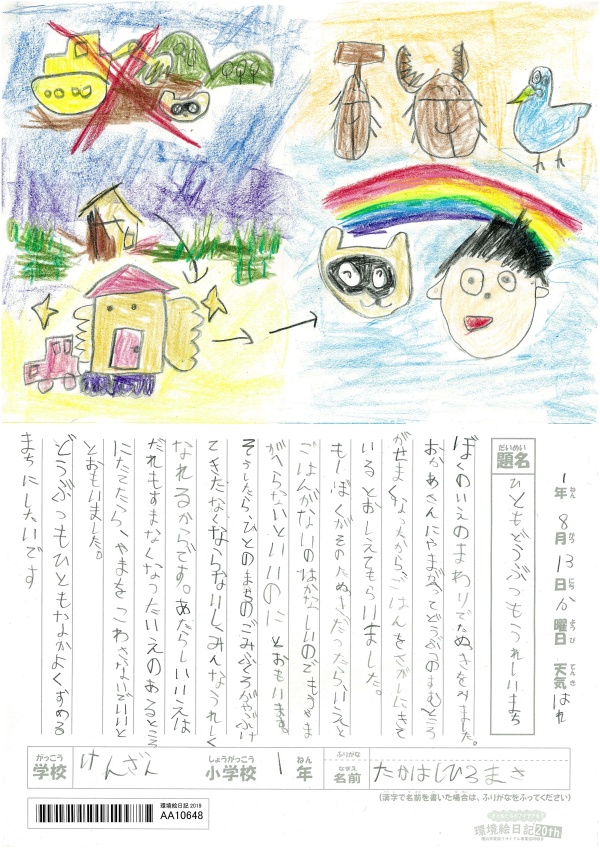 1年 8月 13日 か曜日 天気 はれ
ねん がつ にち ようび てんき
だいめい
題名
ひともどうぶつもうれしいまち
ぼくのいえのまわりでたぬきをみました。
おかあさんにやまがへってどうぶつのすむところ
がせまくなったからごはんをさがしにきて
いるとおしえてもらいました。
もしぼくがそのたぬきだったら、いえと
ごはんがないのはかなしいのでもうやま
がへらないといいのにとおもいます。
そうしたら、ひとのまちのごみぶくろがやぶけ
てきたなくならないしみんなうれしく
なれるからです。あたらしいいえは
だれもすまなくなったいえのあるところ
にたてたら、やまをこわさないでいいと
とおもいました。
どうぶつもひともなかよくすめる
まちにしたいです
がっこう
学校
けんざん
しょうがっこう
小学校
1
ねん
年
ふりがな
なまえ
名前
たかはしひろまさ
(漢字で名前を書いた場合は、ふりがなをふってください)
環境絵日記 2019
AA10648
環境絵日記20th